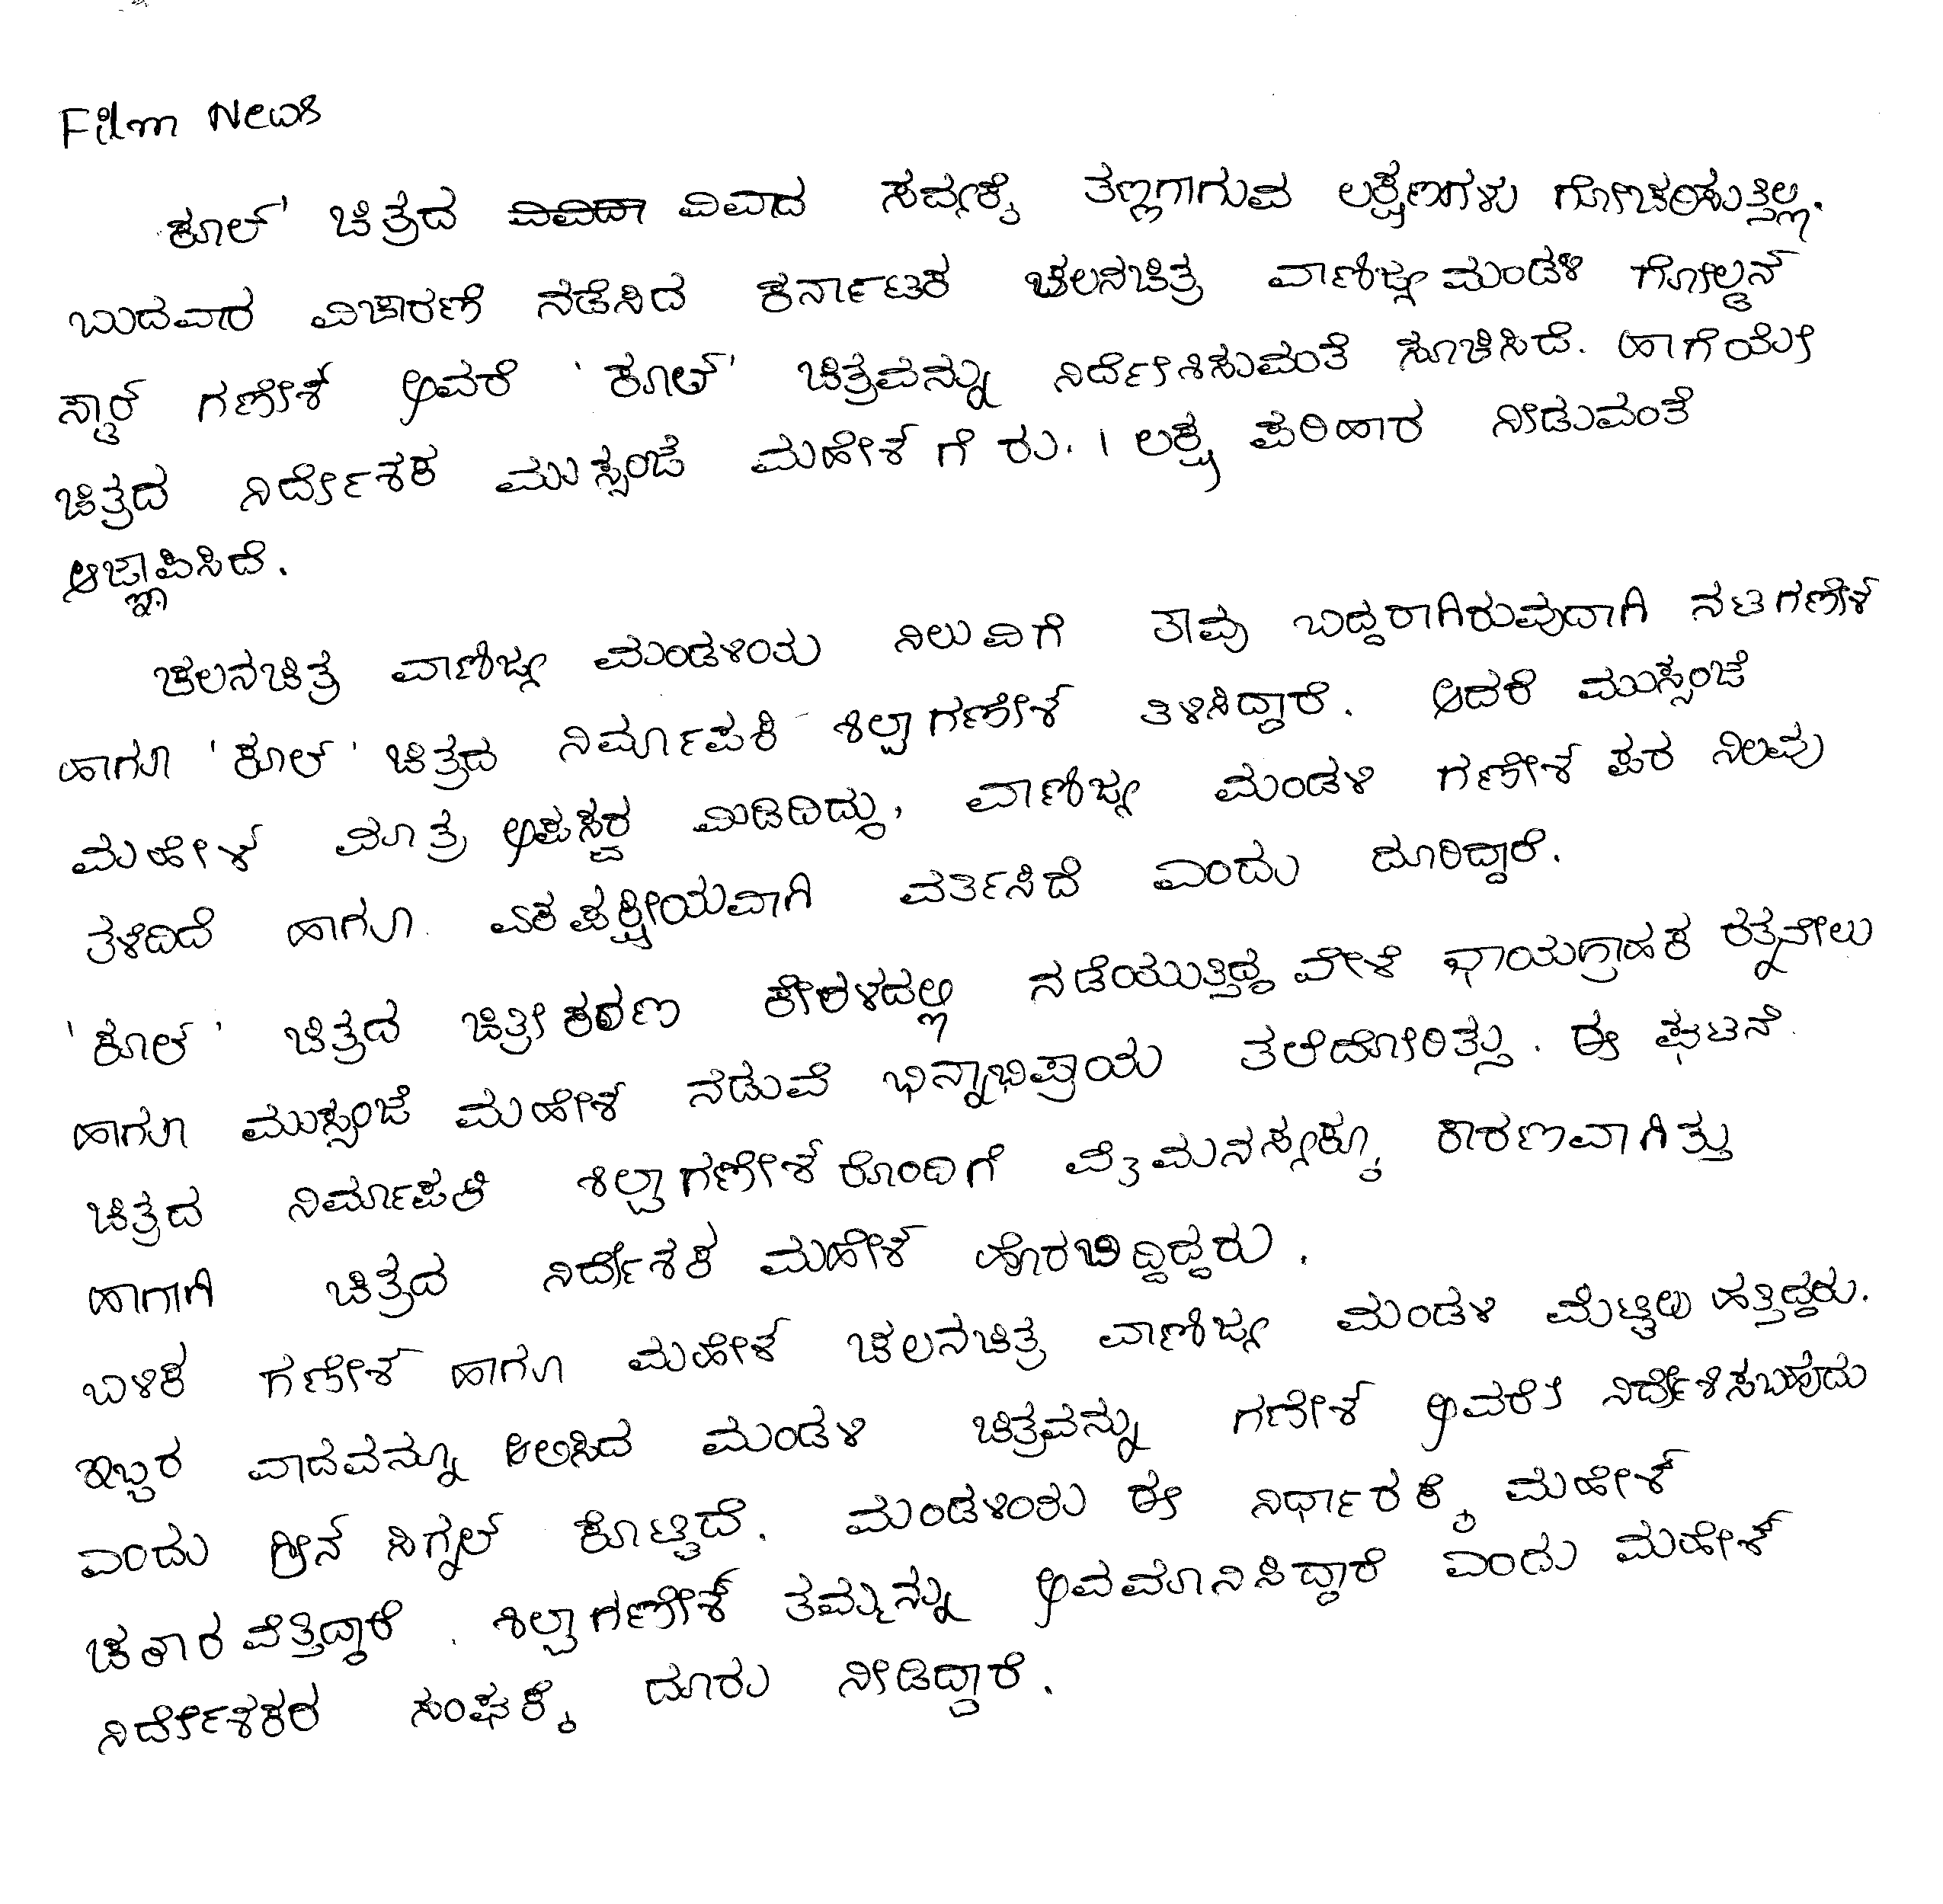 Film News
ಕೂಲ್' ಚಿತ್ರದ ವಿವಾದ ಸದ್ಯಕ್ಕೆ ತಣ್ಣಗಾಗುವ ಲಕ್ಷಣಗಳು ಗೋಚರಿಸುತ್ತಿಲ್ಲ.
ಬುದವಾರ ವಿಚಾರಣೆ ನಡೆಸಿದ ಕರ್ನಾಟಕ ಚಲನಚಿತ್ರ ವಾಣಿಜ್ಯ ಮಂಡಳಿ ಗೋಲ್ಡನ್
ಸ್ಟಾರ್ ಗಣೇಶ್ ಅವರೆ 'ಕೂಲ್' ಚಿತ್ರವನ್ನು ನಿರ್ದೇಶಿಸುವಂತೆ ಸೂಚಿಸಿದೆ. ಹಾಗೆಯೇ
ಚಿತ್ರದ ನಿರ್ದೇಶಕ ಮುಸ್ಸಂಜೆ ಮಹೇಶ್ ಗೆ ರು. 1 ಲಕ್ಷ ಪರಿಹಾರ ನೀಡುವಂತೆ
ಆಜ್ಞಾಪಿಸಿದೆ.
ಚಲನಚಿತ್ರ ವಾಣಿಜ್ಯ ಮಂಡಳಿಯ ನಿಲುವಿಗೆ ತಾವು ಬದ್ದರಾಗಿರುವುದಾಗಿ ನಟ ಗಣೇಶ್
ಹಾಗೂ 'ಕೂಲ್' ಚಿತ್ರದ ನಿರ್ಮಾಪಕಿ ಶಿಲ್ಪಾ ಗಣೇಶ್ ತಿಳಿಸಿದ್ದಾರೆ. ಆದರೆ ಮುಸ್ಸಂಜೆ
ಮಹೇಶ್ ಮಾತ್ರ ಅಪಸ್ವರ ಮಿಡಿದಿದ್ದು, ವಾಣಿಜ್ಯ ಮಂಡಳಿ ಗಣೇಶ್ ಪರ ನಿಲುವು
ತಳೆದಿದೆ ಹಾಗೂ ಏಕಪಕ್ಷೀಯವಾಗಿ ವರ್ತಿಸಿದೆ ಎಂದು ದೂರಿದ್ದಾರೆ.
'ಕೂಲ್' ಚಿತ್ರದ ಚಿತ್ರೀಕರಣ ಕೇರಳದಲ್ಲಿ ನಡೆಯುತ್ತಿದ್ದ ವೇಳೆ ಛಾಯಗ್ರಾಹಕ ರತ್ನವೇಲು
ಹಾಗೂ ಮುಸ್ಸಂಜೆ ಮಹೇಶ್ ನಡುವೆ ಭಿನ್ನಾಭಿಪ್ರಾಯ ತಲೆದೋರಿತ್ತು. ಈ ಘಟನೆ
ಚಿತ್ರದ ನಿರ್ಮಾಪಕಿ ಶಿಲ್ಪಾ ಗಣೇಶ್ ರೊಂದಿಗೆ ವೈಮನಸ್ಯಕ್ಕೂ ಕಾರಣವಾಗಿತ್ತು
ಹಾಗಾಗಿ ಚಿತ್ರದ ನಿರ್ದೇಶಕ ಮಹೇಶ್ ಹೊರಬಿದ್ದಿದ್ದರು.
ಬಳಿಕ ಗಣೇಶ್ ಹಾಗೂ ಮಹೇಶ್ ಚಲನಚಿತ್ರ ವಾಣಿಜ್ಯ ಮಂಡಳಿ ಮೆಟ್ಟಿಲು ಹತ್ತಿದ್ದರು.
ಇಬ್ಬರ ವಾದವನ್ನೂ ಆಲಿಸಿದ ಮಂಡಳಿ ಚಿತ್ರವನ್ನು ಗಣೇಶ್ ಅವರೇ ನಿರ್ದೇಶಿಸಬಹುದು
ಎಂದು ಗ್ರೀನ್ ಸಿಗ್ನಲ್ ಕೊಟ್ಟಿದೆ. ಮಂಡಳಿಯ ಈ ನಿರ್ಧಾರಕ್ಕೆ ಮಹೇಶ್
ಚಕಾರವೆತ್ತಿದ್ದಾರೆ. ಶಿಲ್ಪಾ ಗಣೇಶ್ ತಮ್ಮನ್ನು ಅವಮಾನಿಸಿದ್ದಾರೆ ಎಂದು ಮಹೇಶ್
ನಿರ್ದೇಶಕರ ಸಂಘಕ್ಕೆ ದೂರು ನೀಡಿದ್ದಾರೆ.